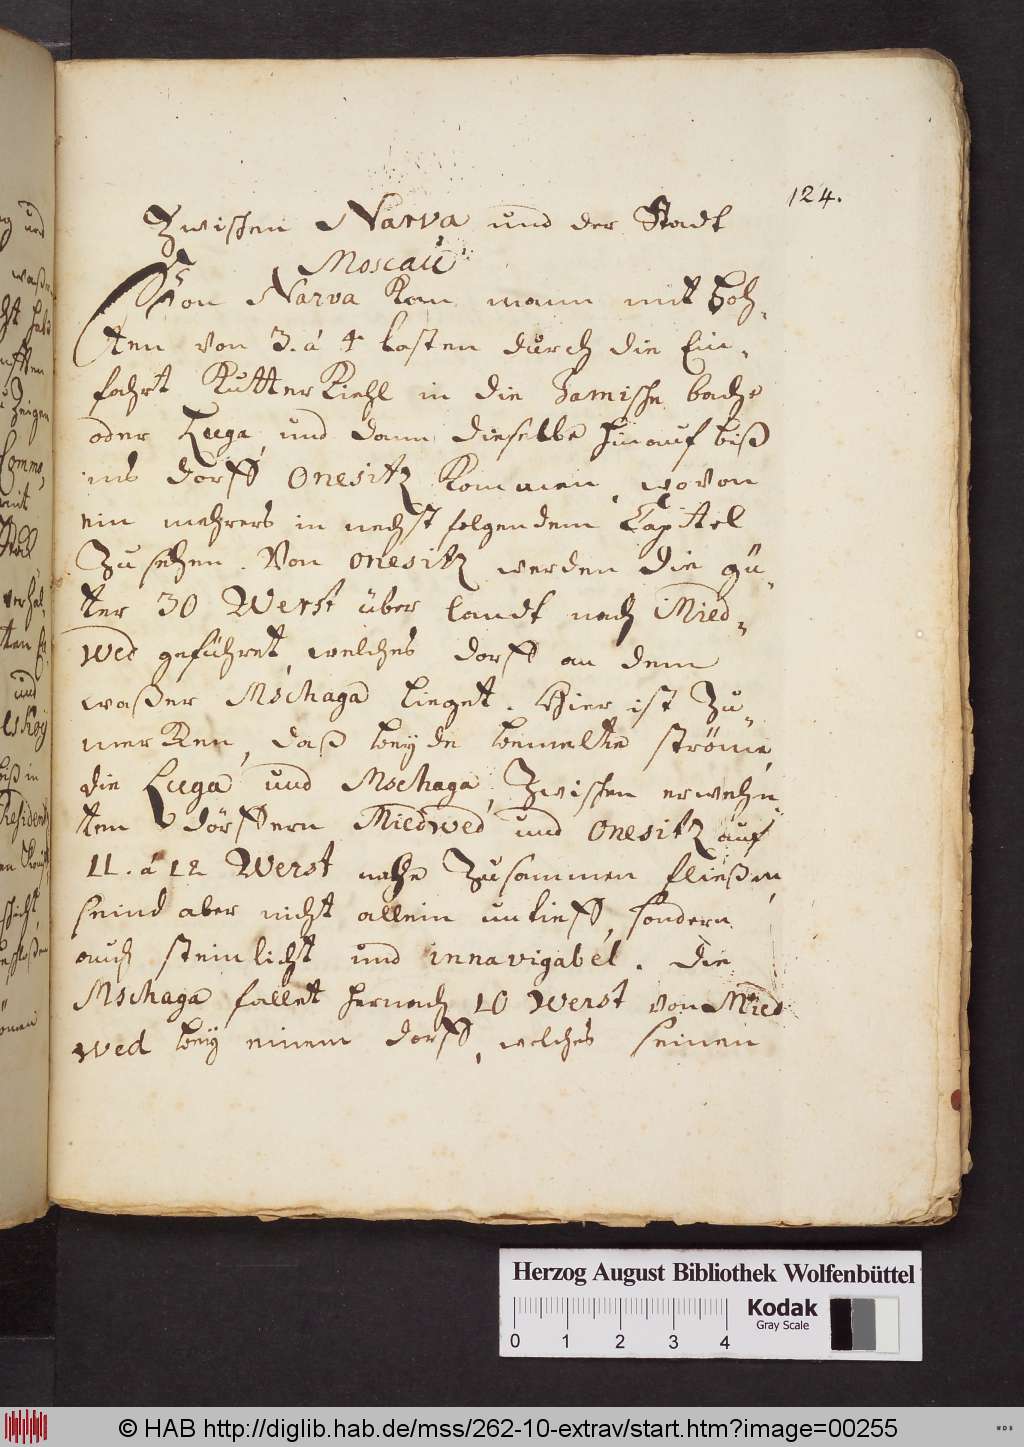 124.
Zwischen Narva und der Stadt
Moscau
Von Narva kan mann mit Boh-
ten von 3. á 4 lasten durch die Ein-
fahrt Kutterkiehl in die Jamische bache
oder Luga, und dann dieselbe hinauf biß
ins dorff Onesitz kommen, wovon
ein mehrers in nechst folgendem Capitel
Zu sehen. Von onesitz werden die gü-
ter 30 Werst über landt nach Mied-
wed geführet, welches dorff an dem
waßer Mschaga lieget. Hier ist Zu
mercken, daß beyde bemelte ströme,
die Luga und Mschaga, Zwischen erwehn-
ten dörffern Miedwed und Onesitz auf
11. á 12 Werst nahe Zusammen fließen,
seind aber nicht allein untieff, sondern
auch steinlicht und innavigabel. Die
Mschaga fallet hernach 10 Werst von Mied
wed bey einem dorff, welches seinen
Herzog August Bibliothek Wolfenbüttel
Kodak
Gray Scale
0 1 2 3 4
© HAB http://diglib.hab.de/mss/262-10-extrav/start.htm?image=00255